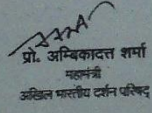 प्रो. अम्बिकादत्त शर्मा
महामंत्री
अखिल भारतीय दर्शन परिषद्